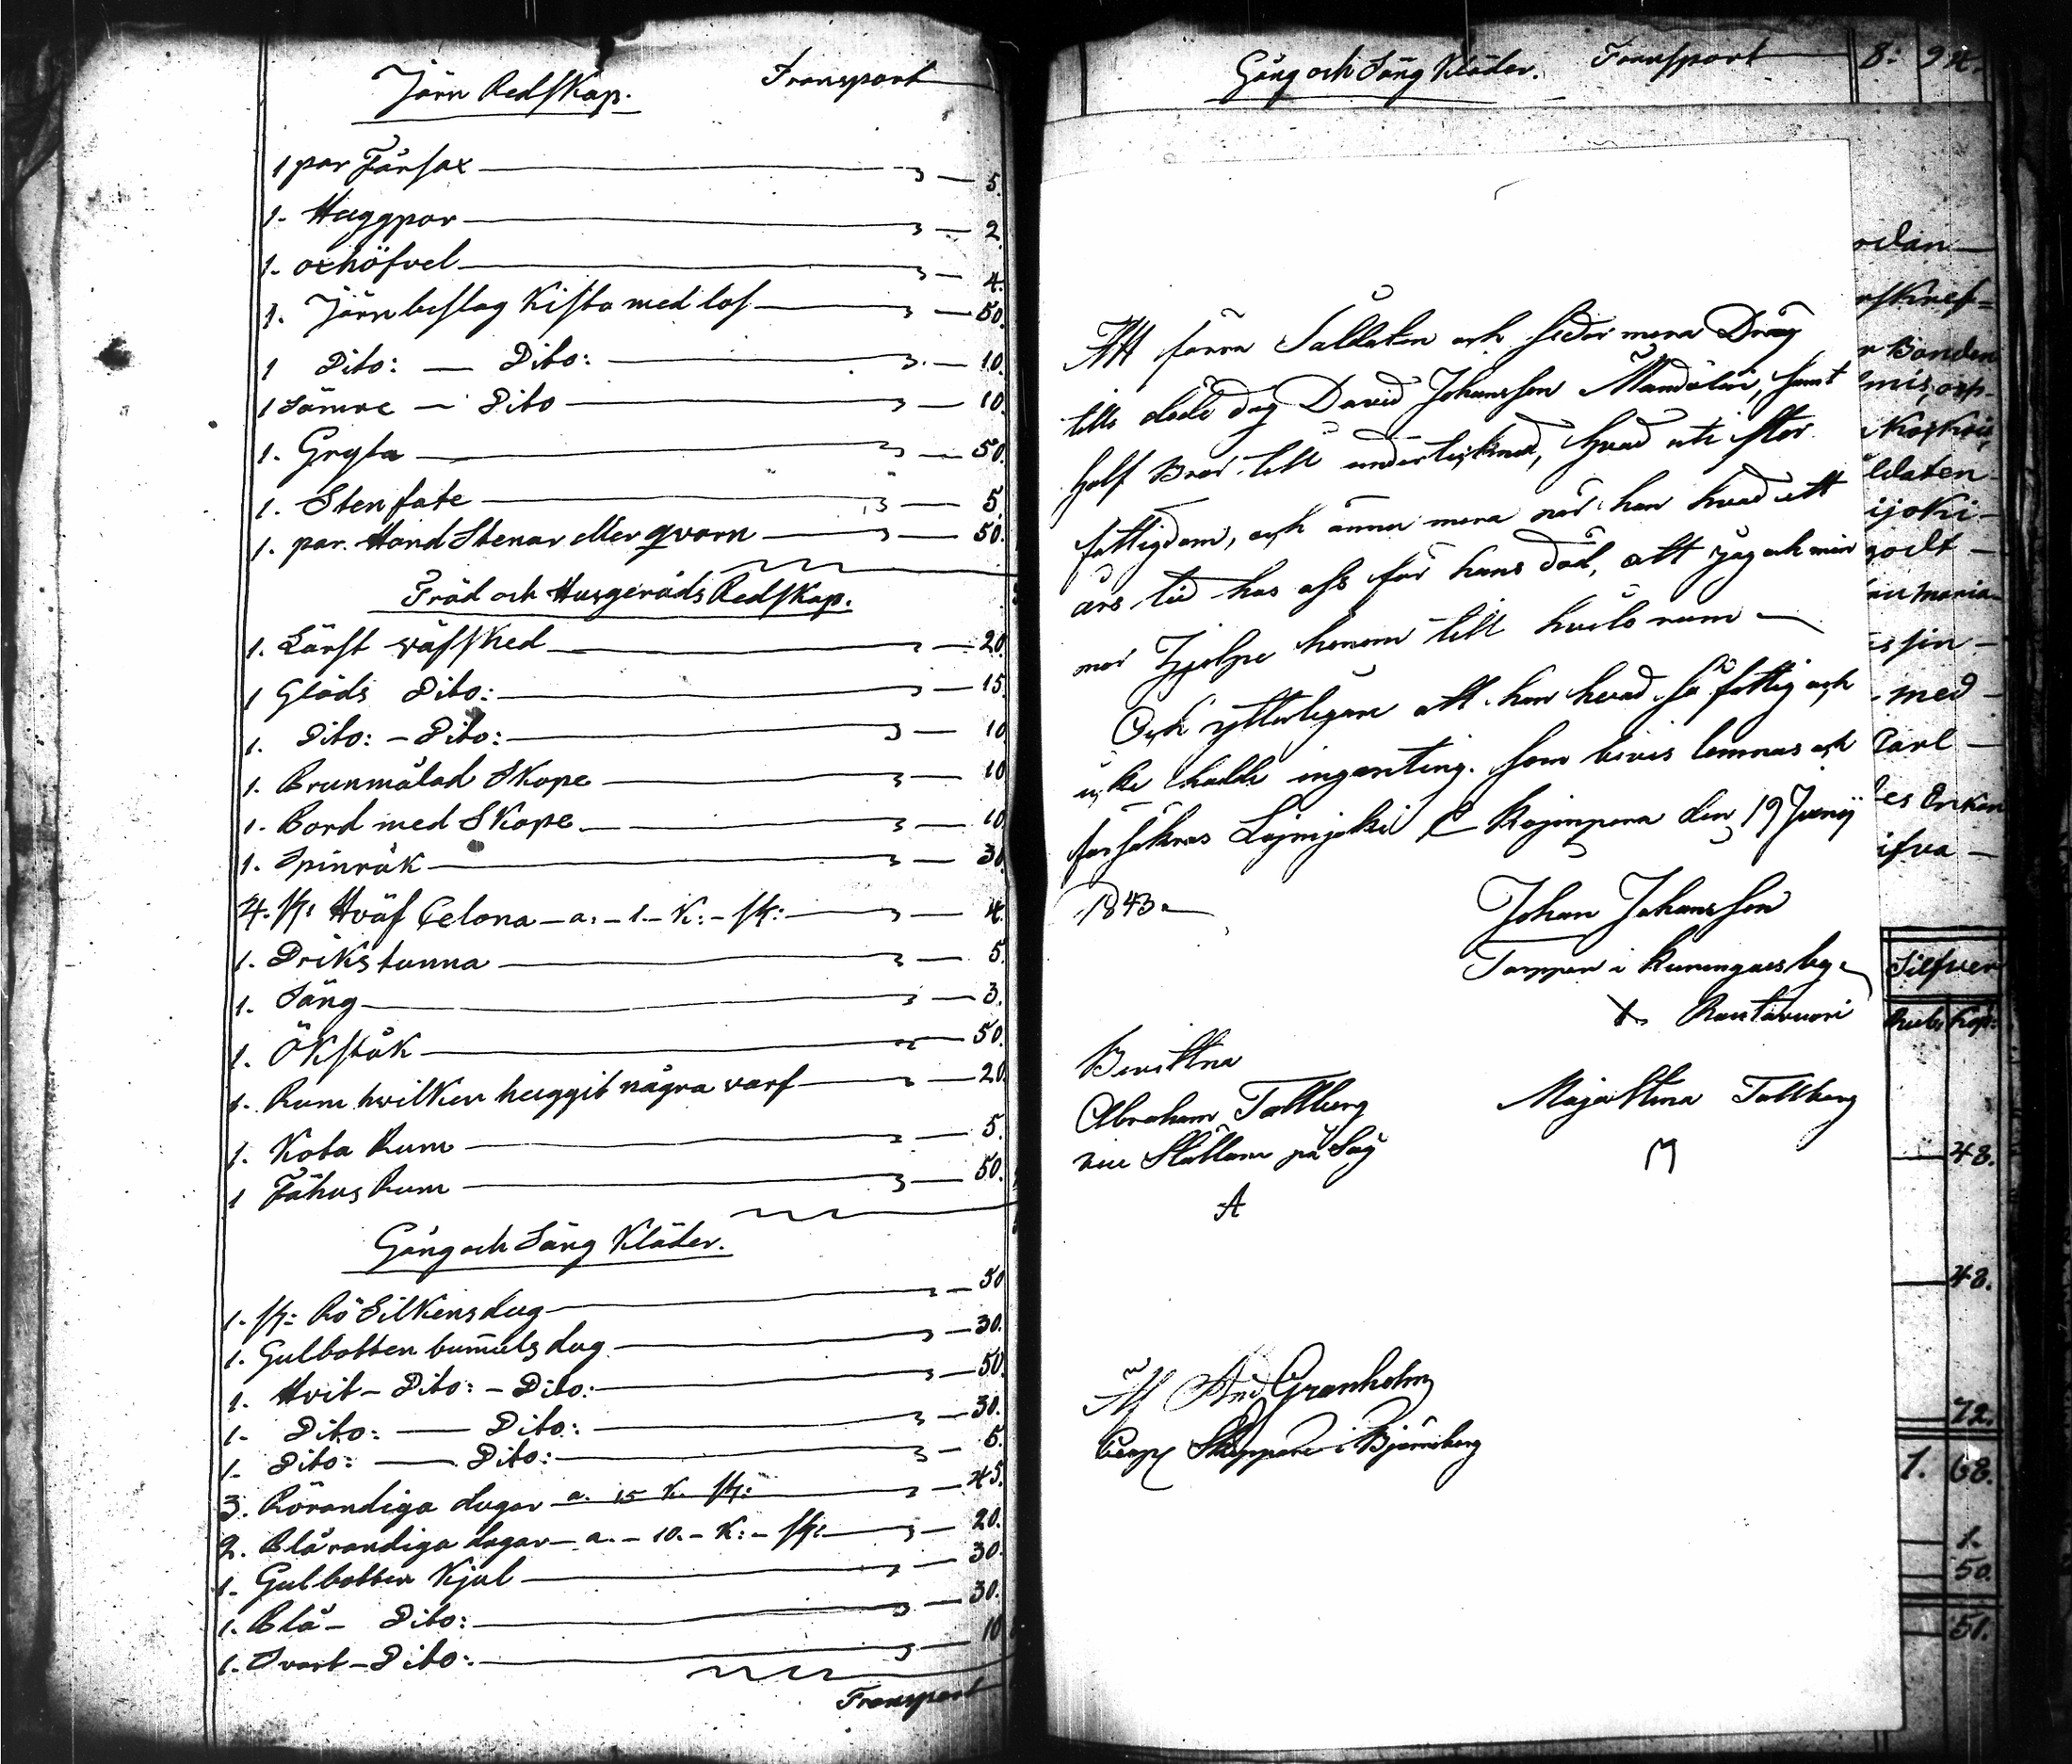 Järn Redskap. Transport
1 par Fårsax — 5.
1. Huggpor — 2.
1. oxhöfvel — 4.
1. Järnbeslag Kista med lås — 50.
1 Dito: — Dito: — 10.
1 Sämre — Dito — 10.
1. Gryta — 50.
1. Stenfate — 5.
1. par. Hand Stenar eller qvarn — 50.
Träd och Husgeråds Redskap.
1. Lärft väfsked — 20.
1 Gläds Dito: — 15.
1. Dito: — Dito: — 10
1. Brunmålad Skope — 10
1. Bord med Skope — 10
1. Spinråk — 30
4. st: Hväf Celona — a. — 1. — K: — st: — 4.
1. Drikstunna — 5.
1. Säng — 3.
1. Ökståk — 50.
1. Rum hvilken huggit några varf — 20.
1. Kota Rum — 5.
1 Fähus Rum — 50.
Gång och Säng Kläder.
1. st: Rö Silkensdug — 50
1. Gulbotten bumulsdug — 30.
1. Hvit — Dito: — Dito: — 50
1. Dito: — Dito: — 30.
1. Dito: — Dito: — 5.
3. Rörandiga dugar a. 15 K. st: — 45.
2. Blårandiga dugar — a. — 10. — K: — st: — 20.
1. Gulbotten Kjol — 30.
1. Blå — Dito: — 30.
1. Svart — Dito: — 10
Transport
Gång och Säng Kläder. Transport 8: 92.
Att förra Soldaten och sedermera Dräng
till döde dag David Johansson Mandolin, samt
half Bror till undertecknad, hvad uti stor
fattigdom, och ännu mera när han hvad ett
års tid hos oss för hans död, att jag och min
mor hjelpe honom till hvilo rum —
Och ytterligare att han hvad så fattig och
icke hadde ingenting. som bevis lemnas och
försäkras Lojmjoki C Kojenpera den 19 Junij
1843.
Johan Johansson
Torppar i Kuningais by.
X. Rautavuori
Bevittna
Abraham Tallberg
vice på Såg
A
Maja Stina Tallberg
M
And Granholm
Skeppare i Björneborg
odan —
Bonden
ldaten
ijoki —
godt —
maria
sin —
med —
Carl —
Enkan
ifva —
Silfver
Rub. Kop:
48.
48.
72.
1. 68.
1.
50.
51.